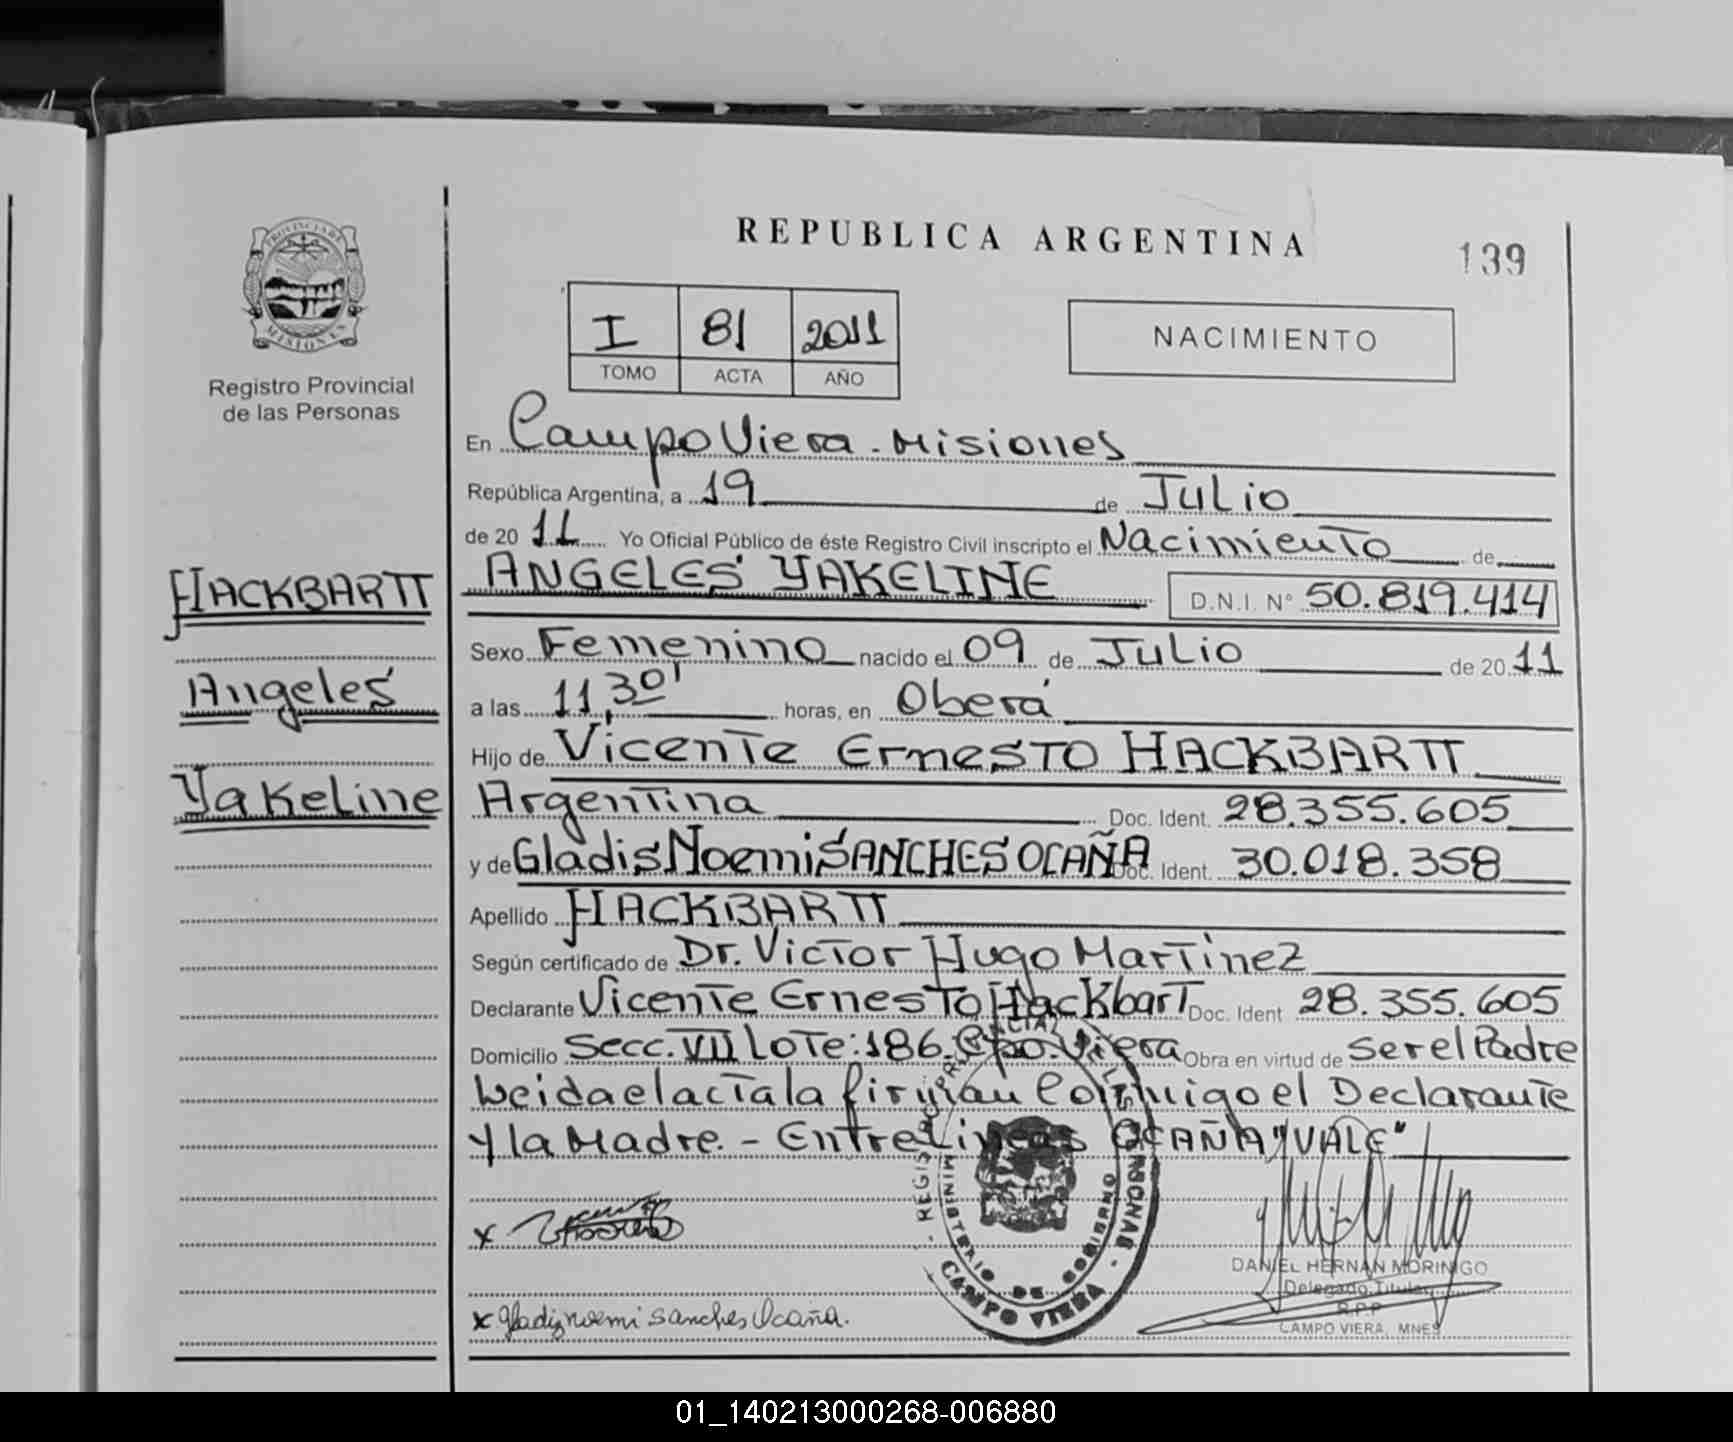 REPUBLICA ARGENTINA
139
PROVINCIA DE
MISIONES
Registro Provincial
de las Personas
I 81 2011
TOMO ACTA AÑO
NACIMIENTO
En Campo Viera - Misiones
República Argentina, a 19 de Julio
de 2011 Yo Oficial Público de éste Registro Civil inscripto el Nacimiento de
ANGELES YAKELINE D.N.I. N° 50.819.414
HACKBARTT
Angeles
Yakeline
Sexo Femenino nacido el 09 de Julio de 2011
a las 11,30' horas, en Oberá
Hijo de Vicente Ernesto HACKBARTT
Argentina Doc. Ident. 28.355.605
y de Gladis Noemi SANCHES OCAÑA Doc. Ident. 30.018.358
Apellido HACKBARTT
Según certificado de Dr. Victor Hugo Martinez
Declarante Vicente Ernesto Hackbart Doc. Ident 28.355.605
Domicilio Secc. VII Lote: 186. Cpo. Viera Obra en virtud de ser el Padre
Leida el acta la firman Conmigo el Declarante
y la Madre. - Entre Lineas OCAÑA "VALE"
REGISTRO PROVINCIAL DE LAS PERSONAS -
MINISTERIO DE GOBIERNO
CAMPO VIERA
x
x Gladiz noemi sanches Ocaña.
DANIEL HERNAN MORINIGO
Delegado Titular
R.P.P.
CAMPO VIERA, MNES
01_140213000268-006880